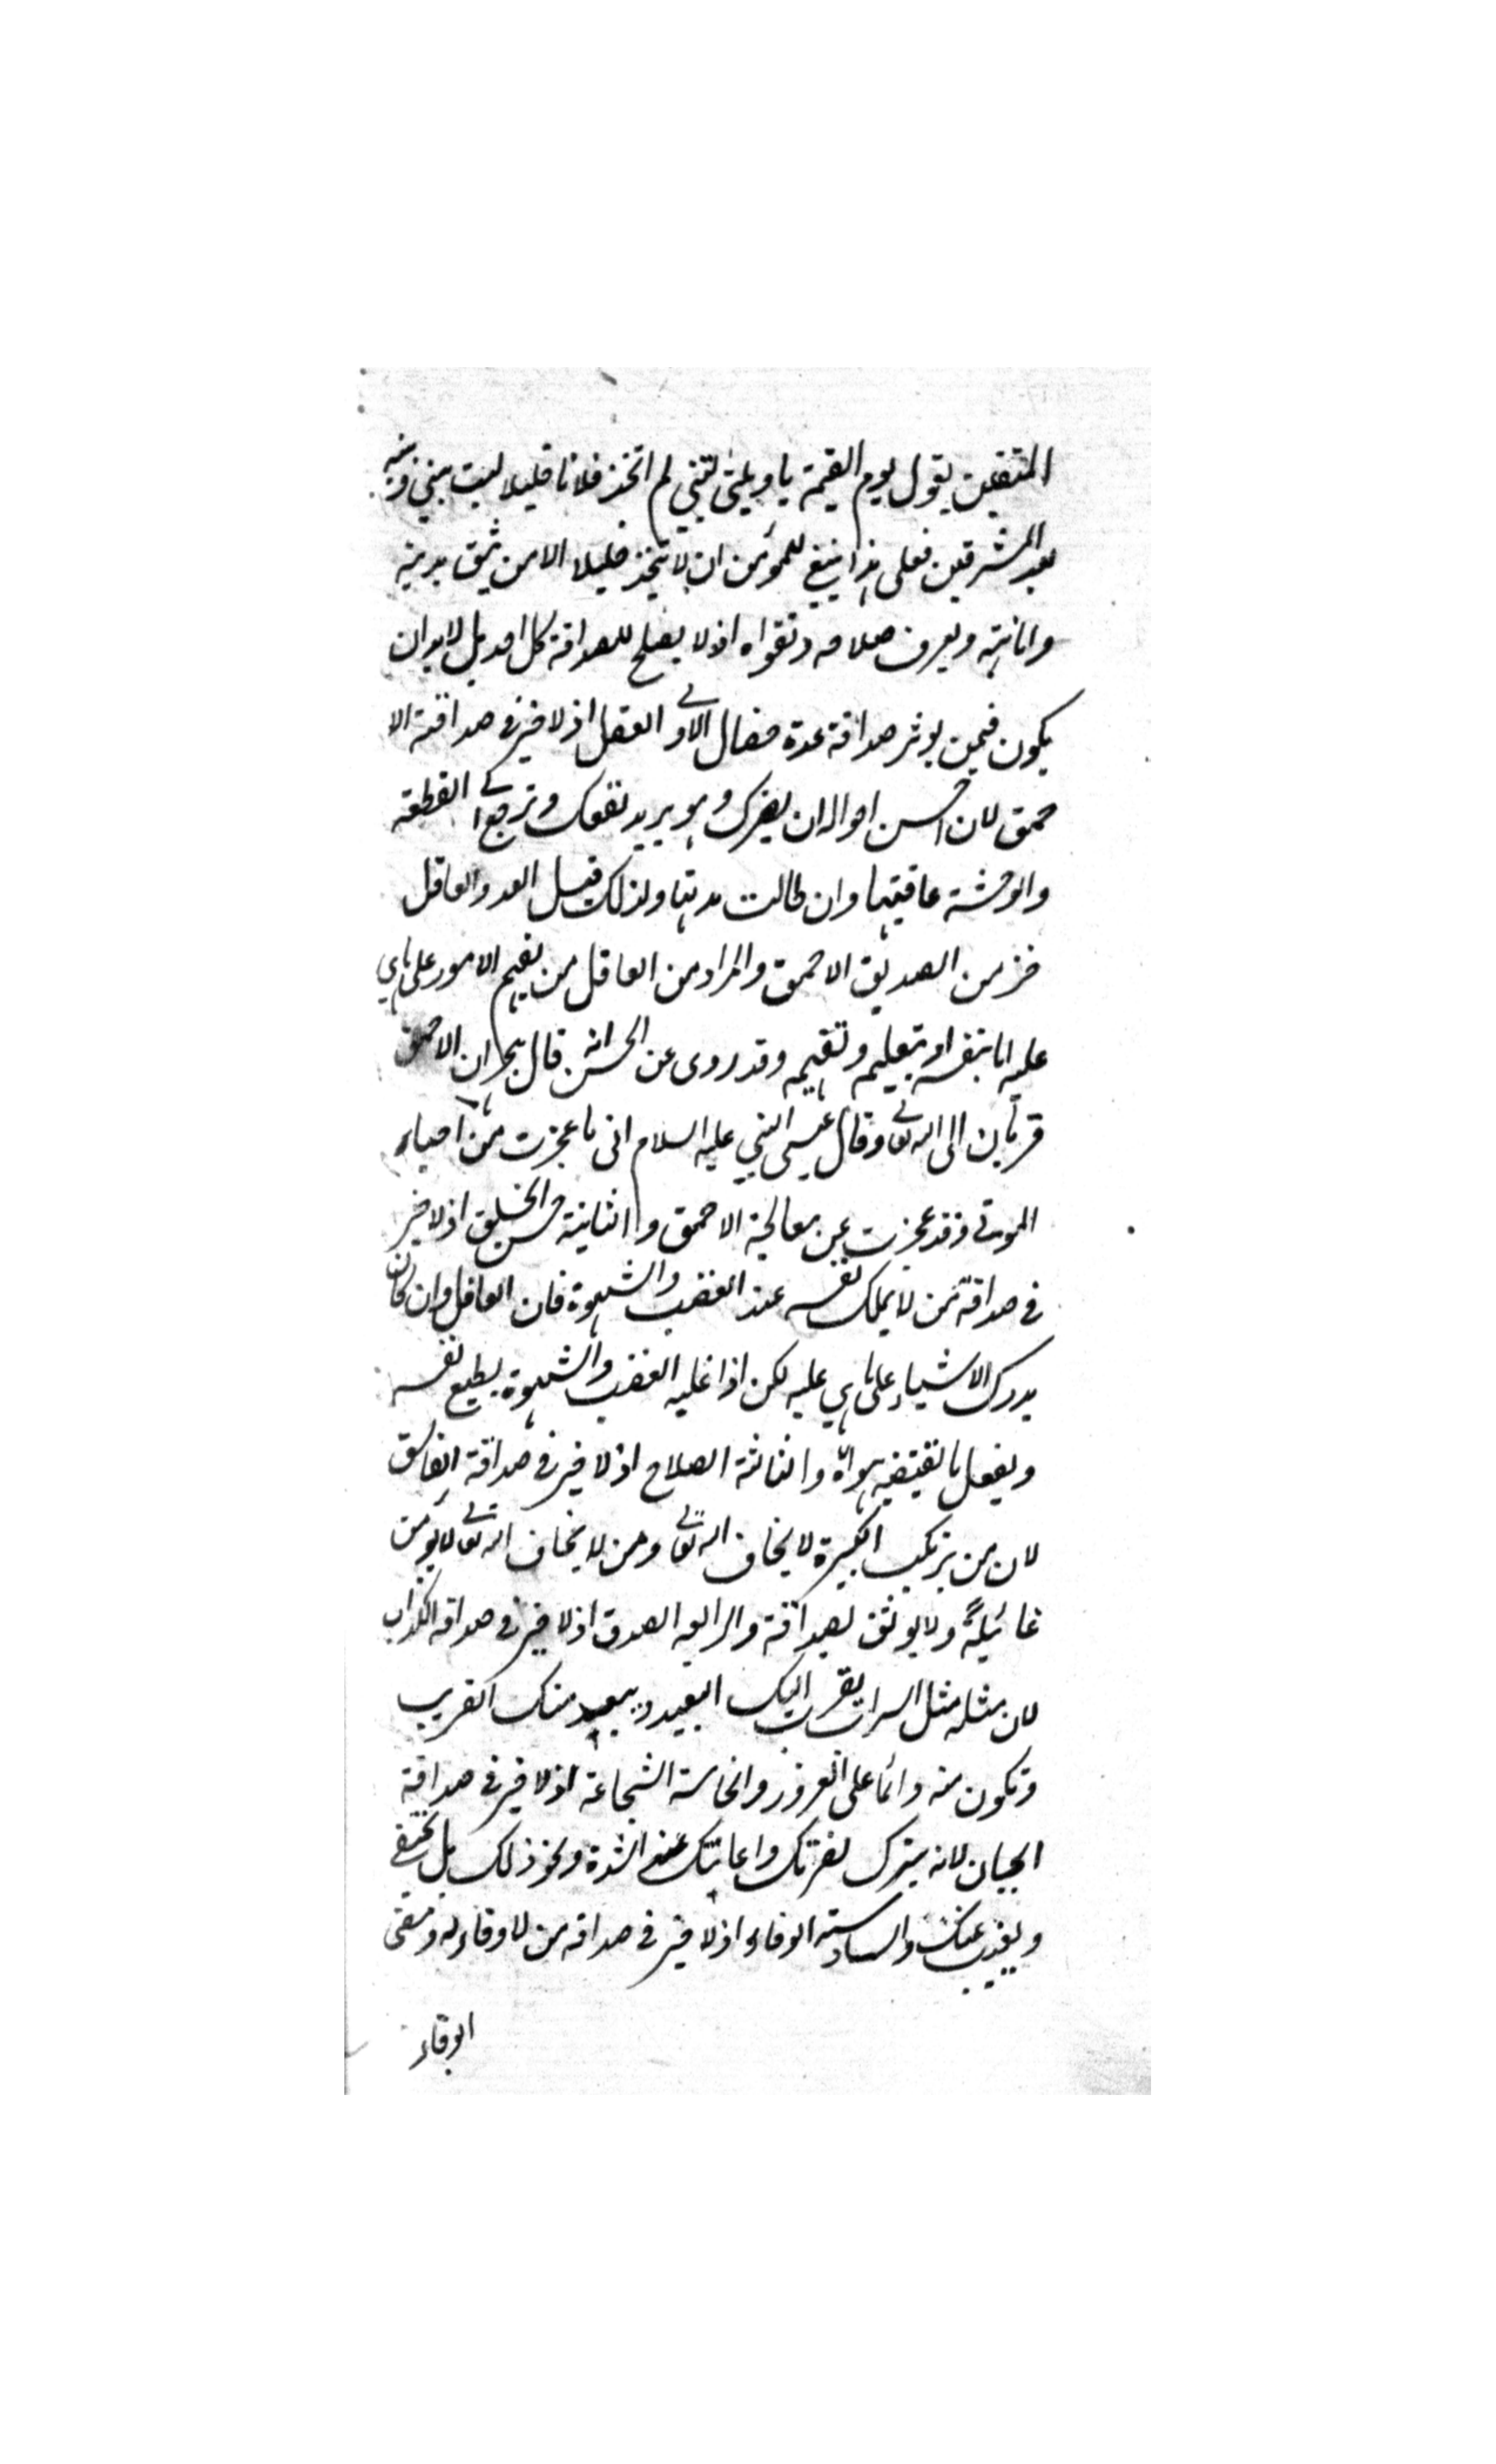 المتقين يقول يوم القيمة يا ويلتى ليتني لم اتخذ فلانا خليلا ليت بيني وبينه
بعد المشرقين فعلى هذا ينبغي للمؤمن ان لا يتخذ خليلا الا من يثق بدينه
وامانته ويعرف صلاحه وتقواه اذ لا يصلح للصداقة كل احد بل لا بد ان
يكون فيمن يوثر صداقة عدة خصال الاولى العقل اذ لا خير في صداقة الا
حمق لان احسن احواله ان يضرك وهو يريد نفعك وترجع الى القطيعة
والوحشة عاقبتها وان طالت مدتها ولذلك قيل العدو العاقل
خير من الصديق الاحمق والمراد من العاقل من يفهم الامور على ما هي
عليه اما بنفسه او بتعليم وتفهيم وقد روى عن الحسن انه قال هجران الاحمق
قربان الى الله تعالى وقال عيسى النبي عليه السلام انى ما عجزت من احياء
الموتى وقد عجزت عن معالجة الاحمق والثانية حسن الخلق اذ لا خير
في صداقة من لا يملك نفسه عند الغضب والشهوة فان العاقل وان كان
يدرك الاشياء على ما هي عليه لكن اذا غلبه الغضب والشهوة يطيع نفسه
ويفعل ما تقتضيه هواه والثالثة الصلاح اذ لا خير في صداقة الفاسق
لان من يرتكب الكبيرة لا يخاف الله تعالى ومن لا يخاف الله تعالى لا يؤمن
غائيلة ولا يوثق بصداقته والرابعة الصدق اذ لا خير في صداقة الكذاب
لان مثله مثل السراب يقرب اليك البعيد ويبعد منك القريب
وتكون منه دائما على الغرور والخامسة الشجاعة اذ لا خير في صداقة
الجبان لانه يترك نصرتك واعانتك عند الشدة ونحو ذلك بل يختفى
ويغيب عنك والسادسة الوفاء اذ لا خير في صداقة من لا وفاء له ومعنى
الوفاء